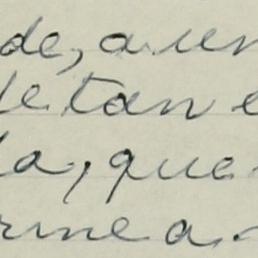 de, a un
de tan e
la, que
rme a